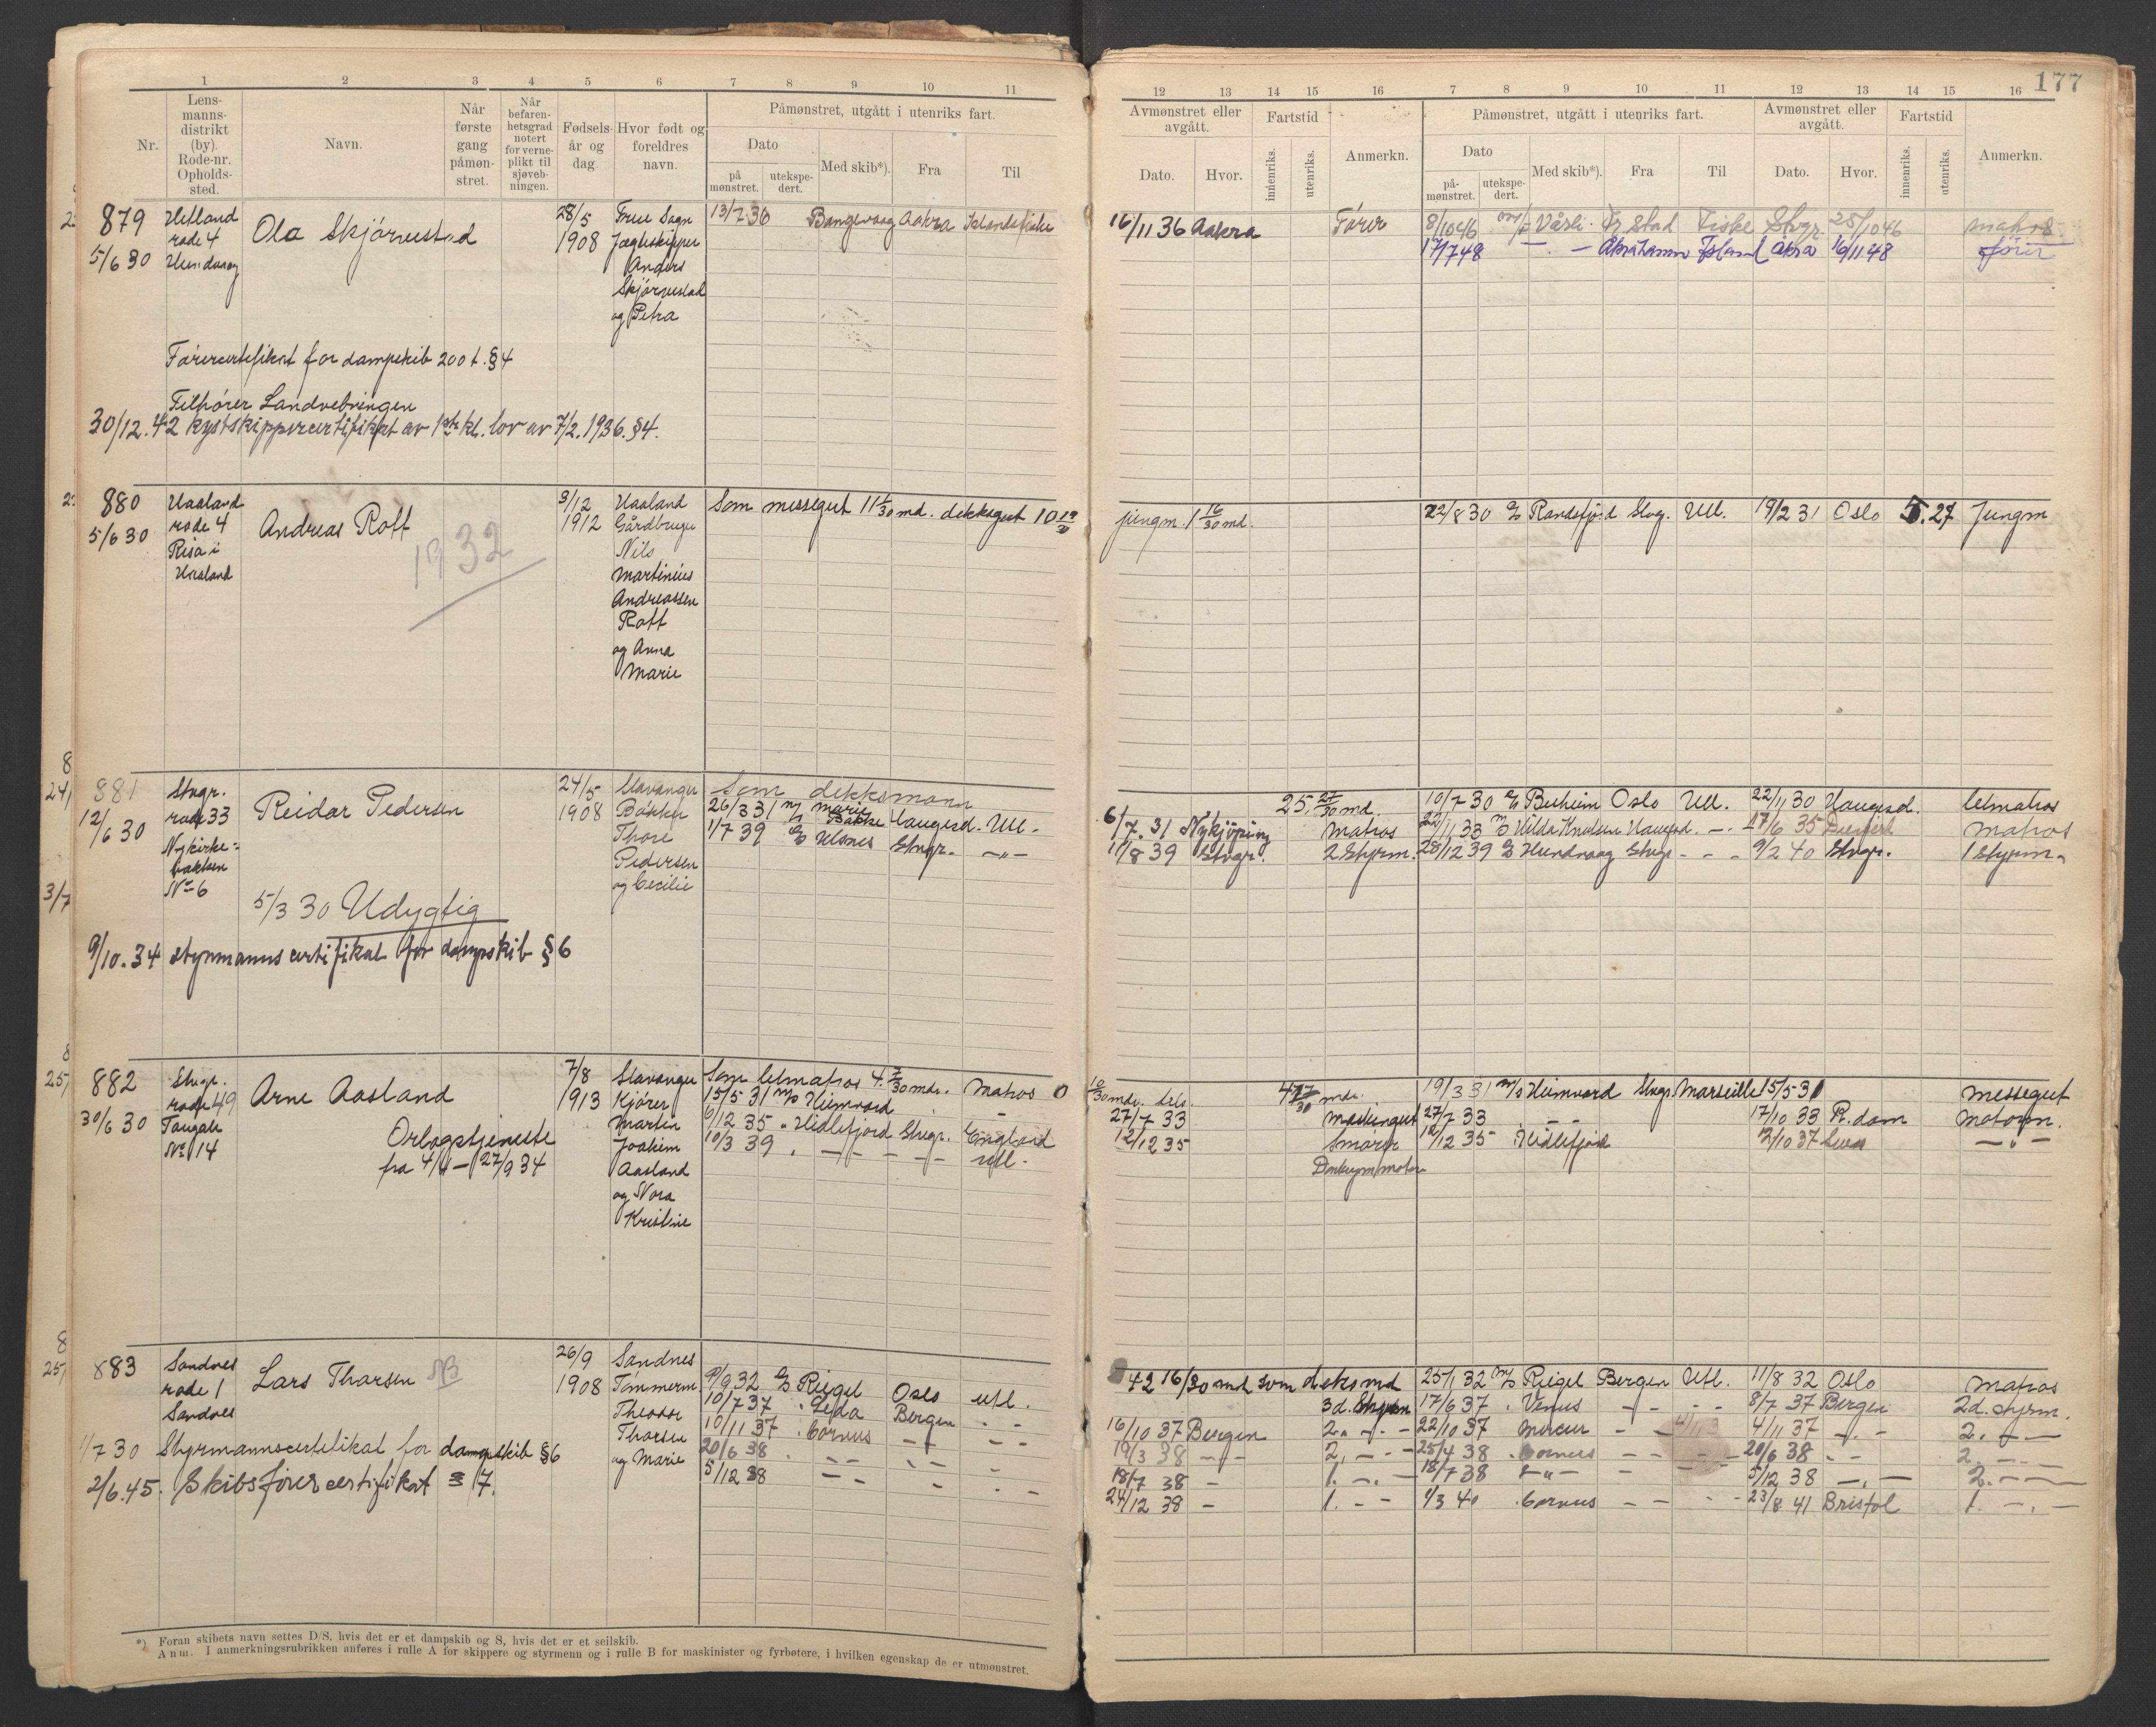 177
1 2 3 4 5 6 7 8 9 10 11
Nr.
Lens-
manns-
distrikt
(by).
Rode-nr.
Opholds-
sted.
Navn.
Når
første
gang
påmøn-
stret.
Når
befaren-
hetsgrad
notert
for verne-
plikt til
sjøveb-
ningen.
Fødsels-
år og
dag
Hvor født og
foreldres
navn.
Påmønstret, utgått i utenriks fart.
Dato
på
mønstret.
utekspe-
dert.
Med skib*).
Fra
Til
12 13 14 15 16 7 8 9 10 11 12 13 14 15 16
Avmønstret eller
avgått.
Dato.
Hvor.
Fartstid
innenriks.
utenriks.
Anmerkn.
Påmønstret, utgått i utenriks fart.
Dato
på-
mønstret.
utekspe-
dert.
Med skib*).
Fra
Til
Avmønstret eller
avgått.
Dato.
Hvor.
Fartstid
innenriks.
utenriks.
Anmerkn.
879
5/6 30
Hetland
rode 4
Hundvaag
Ola Skjørnestad
28/5
1908
Frue Sogn
Jægtskipper
Anders
Skjørnestad
og Petra
13/7 36 Aakra Islandsfiske
16/11 36 Aakra Fører
8/10 46 Vårli Stad Fiske Stvgr. 25/10 46 matros
17/7 48 — — Åkrahamn Island Åkra 16/11 48 fører
Førercertifikat for dampskib 200 t. §4
Tilhører Landvebningen
30/12.42 kystskippercertifikat av 1ste kl. lov av 7/2.1936. §4.
880
5/6 30
Haaland
rode 4
Risa i
Haaland
Andreas Rott
1932
3/12
1912
Haaland
Gårdbruger
Nils
Martinius
Andreassen
Rott
og Anna
Marie
Som messegut 11 1/30 md. dekksgut 10 19/30
jungm. 1 16/30 md.
22/8 30 Randsfjord Stvg. Utl. 19/2 31 Oslo 5.27 Jungm
881
12/6 30
Stvgr.
rode 33
Nykirke-
bakken
No 6
Reidar Pedersen
24/5
1908
Stavanger
Bøkker
Thore
Pedersen
og Cecilie
Som dekksmann
25. 27/30 md.
26/3 31 m/s Marie Bakke Haugesd. Utl.
1/7 39 Ulsnes Stvgr. —„—
6/7.31 Nykjöping Matros
11/8 39 Stvgr. 2 Styrm.
10/7 30 Oslo Utl. 22/11 30 Haugesd. letmatros
22/11 33 m/s Hilda Knudsen Haugesd. —.— 17/6 35 matros
28/12 39 Hundvaag Stvgr — — 9/2 40 Stvgr. 1 Styrm.
5/3 30 Udygtig
9/10.34 styrmannscertifikat for dampskib §6
882
30/6 30
Stvgr.
rode 49
Taugate
No 14
Arne Aasland
7/8
1913
Stavanger
Kjører
Martin
Joakim
Aasland
og Nora
Kristine
Som letmatros 4. 7/30 mdr. Matros 0
10/30 mdr.
15/5 31 m/s Heimvard
6/12 35 „ Hidlefjord Stvgr. England
10/3 39 . — — — — Utl.
27/7 33 Maskingut
12/12 35 Smører
Donkeym motor
19/3 31 m/s Heimvard Stvgr. Marseille 15/5 31 messegut
27/7 33 — — 17/10 33 R.dam Motorm.
12/12 35 Hidlefjord 2/10 37 —„—
Orlogstjeneste
fra 4/4 — 27/9 34
883
Sandnes
rode 1
Sandnes
Lars Tharsen NB
26/9
1908
Sandnes
Tømmerm
Theodor
Tharsen
og Marie
9/9 32 Riegel Oslo utl.
10/7 37 . Leda Bergen - -
10/11 37 . Cornus — — - -
20/6 38 . - - - - — —
5/12 38 — — — - -
42 16/30 md som deksmd
3d. Styrm
16/10 37 Bergen 2. - -
19/3 38 —„— 2. - -
18/7 38 — 1. —.—
24/12 38 — 1. — —
25/1 32 m/s Riegel Bergen Utl. 11/8 32 Oslo Matros
17/6 37 . Venus — - - - 8/7 37 Bergen 2d. styrm.
22/10 37 Mercur — - 4/11 37 —.— 2. — —
25/4 38 . Cornus — — — 20/6 38 - - 2. — —
18/7 38 —„— — 5/12 38 —.— 2. — —
1/3 40 . Cornus — — - - 23/8 41 Bristol 1. —.—
1/7 30 Styrmannscertifikat for dampskib §6
2/6.45. Skibsførercertifikat § 7.
*) Foran skibets navn settes D/S, hvis det er et dampskib og S, hvis det er et seilskib.
Anm. I anmerkningsrubrikken anføres i rulle A for skippere og styrmenn og i rulle B for maskinister og fyrbøtere, i hvilken egenskap de er utmønstret.